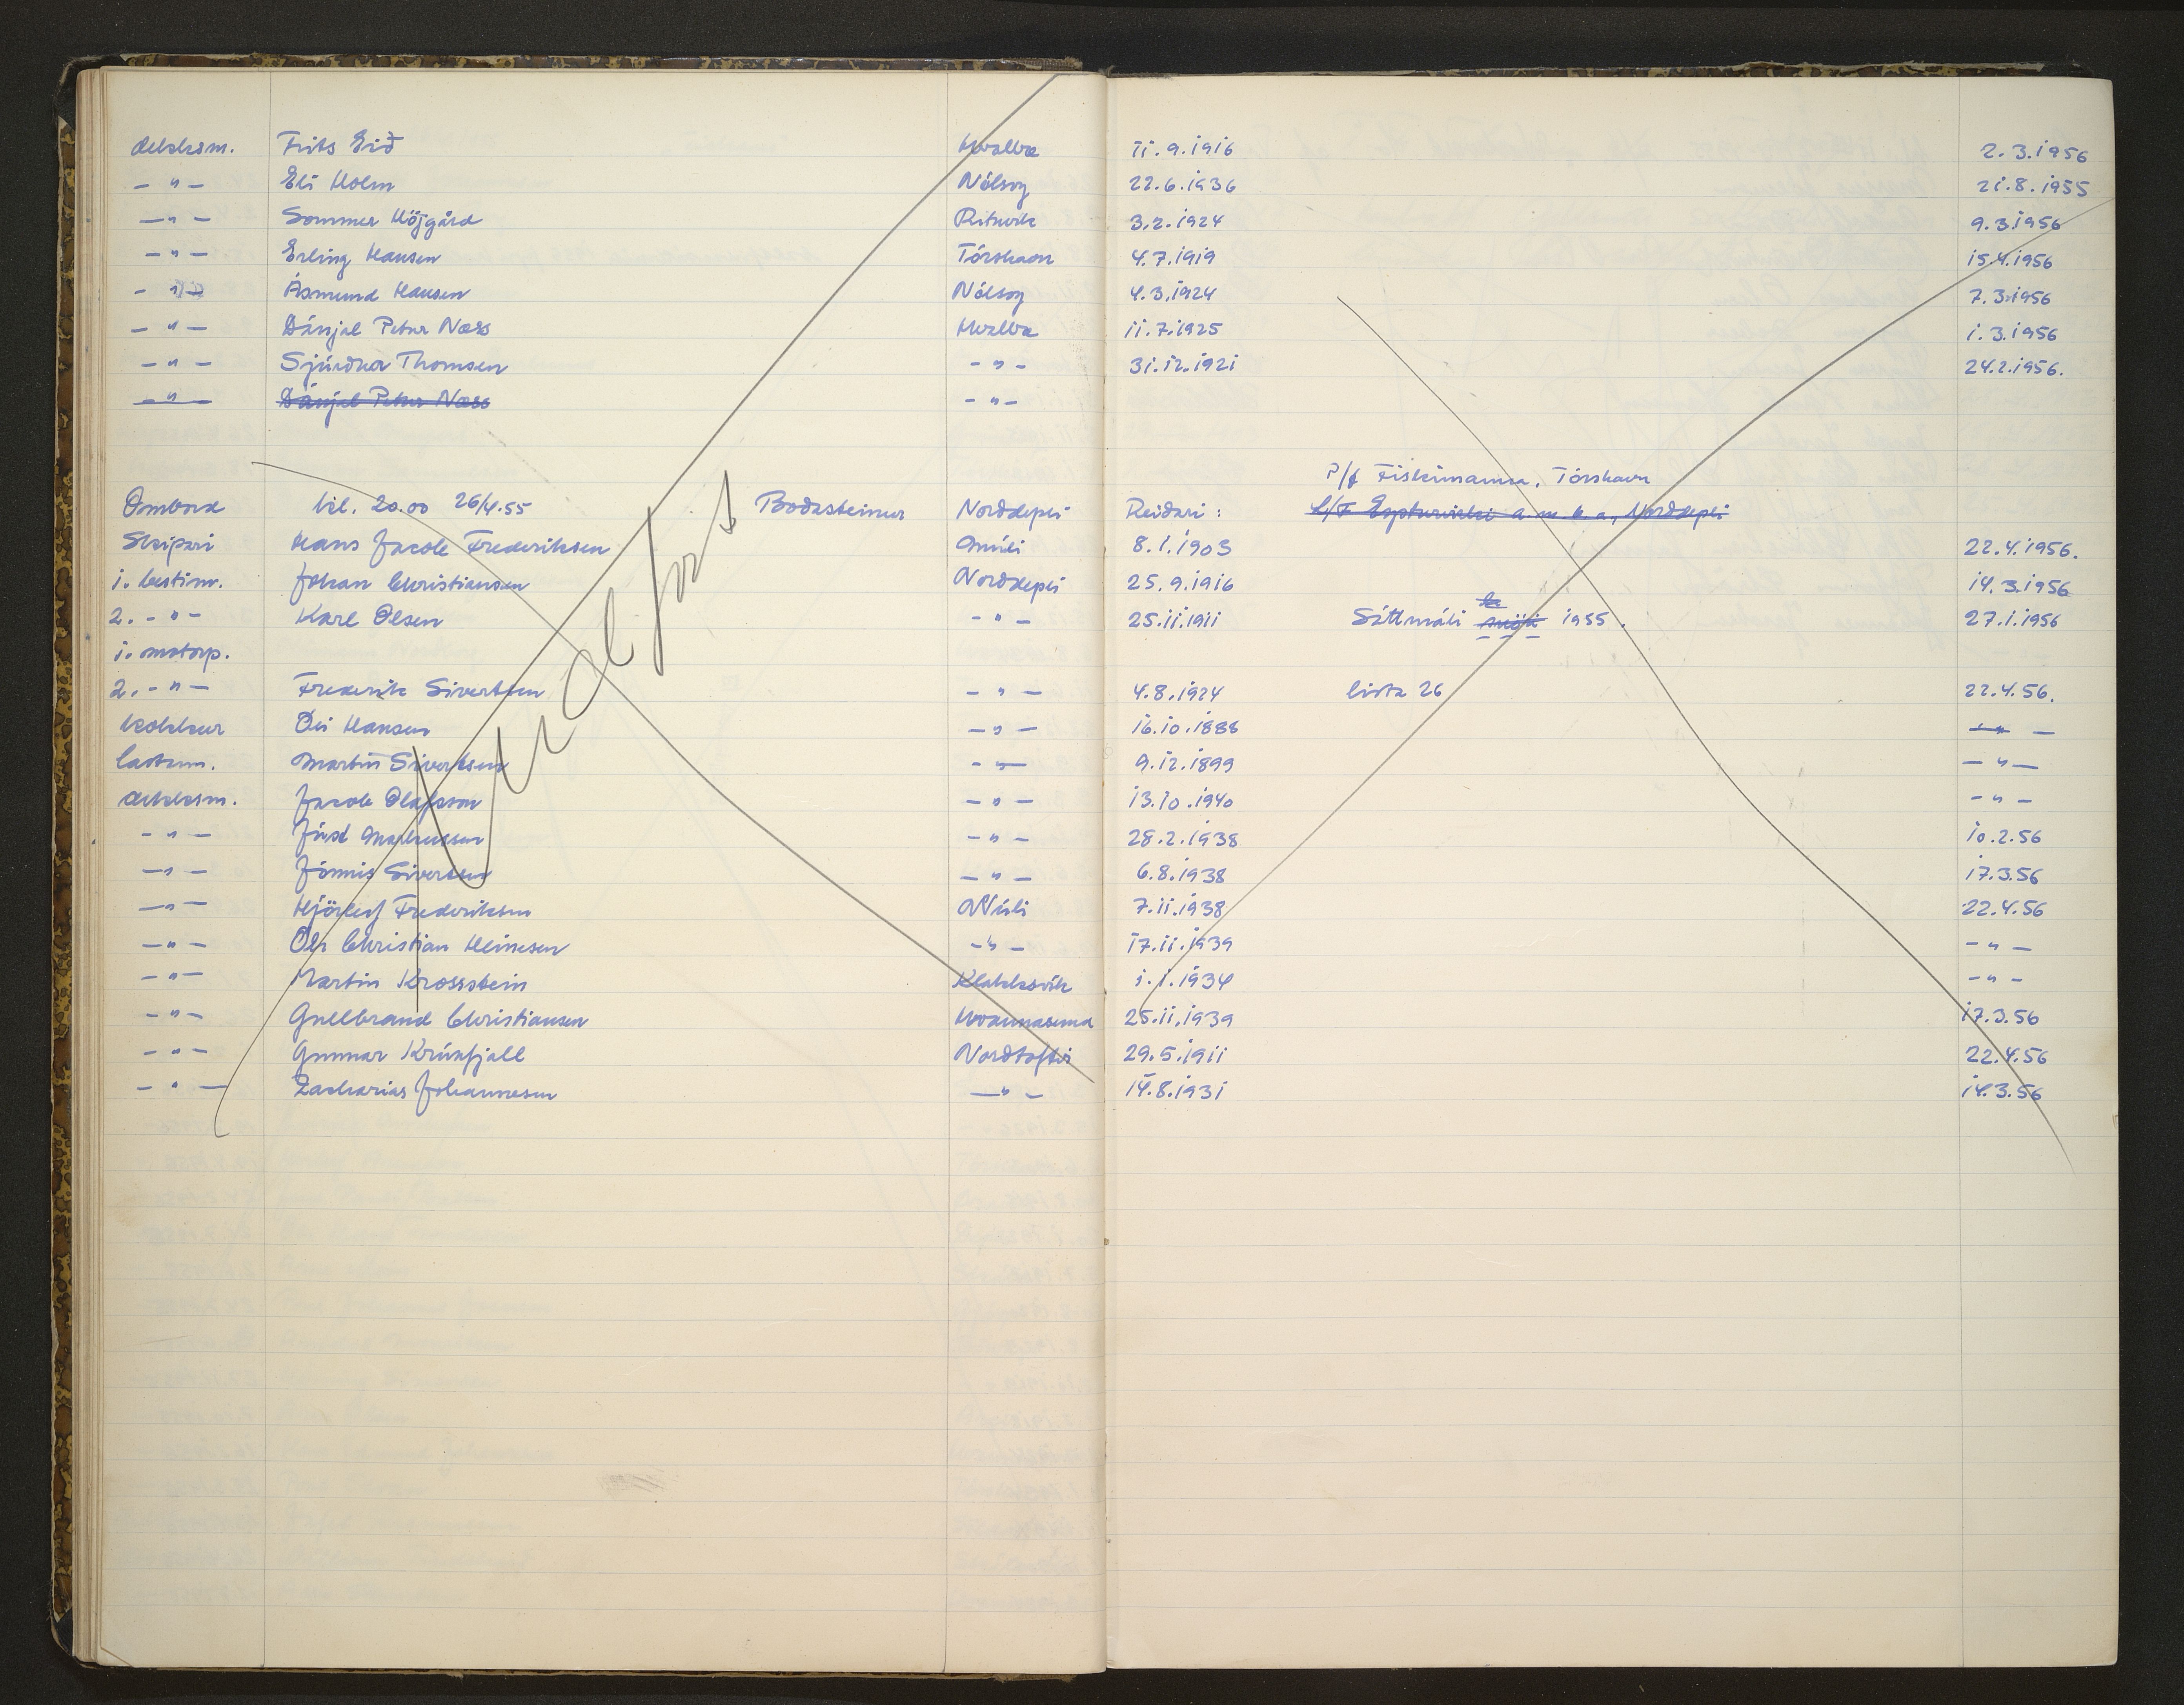 dekksm. Frits Eið Hvalba 11.9.1916 2.3.1956
- " - Eli Holm Nólsoy 22.6.1936 21.8.1955
- " - Sommer Höjgård Rituvík 3.2.1924 9.3.1956
- " - Erling Hansen Tórshavn 4.7.1919 15.4.1956
- " - Ásmund Hansen Nólsoy 4.3.1924 7.3.1956
- " - Dánjal Petur Næss Hvalba 11.7.1925 1.3.1956
- " - Sjúrður Thomsen - " - 31.12.1921 24.2.1956.
- " - Dánjal Petur Næss - " -
P/f Fiskimanna, Tórshavn
Ombord kl. 20.00 26/4.55 Boðasteinur Norðdepil Reiðari: a.m.b.a., Norðdepli
Skipari Hans Jacob Frederiksen Múli 8.1.1903 22.4.1956.
1. bestim. Johan Christiansen Norðdepil 25.9.1916 14.3.1956
2. - " - Karl Olsen - " - 25.11.1911 Sáttmáli 1955. 27.1.1956
1. motorp.
2. - " - Frederik Sivertsen - " - 4.8.1924 lista 26 22.4.56.
kokkur Óli Hansen - " - 16.10.1888 - " -
lastum. Martin Sivertsen - " - 9.12.1899 - " -
dekksm. Jacob Olafsson - " - 13.10.1940 - " -
- " - - " - 28.2.1938 10.2.56
- " - Jónnis Sivertsen - " - 6.8.1938 17.3.56
- " - Hjörleif Frederiksen Múli 7.11.1938 22.4.56
- " - Ole Christian Heinesen - " - 17.11.1939 - " -
- " - Martin Krossstein Klakksvík 1.1.1934 - " -
- " - Gullbrand Christiansen Hvannasund 25.11.1939 17.3.56
- " - Gunnar Krúsfjall Norðtoftir 29.5.1911 22.4.56
- " - Zacharias Johannesen - " - 14.8.1931 14.3.56